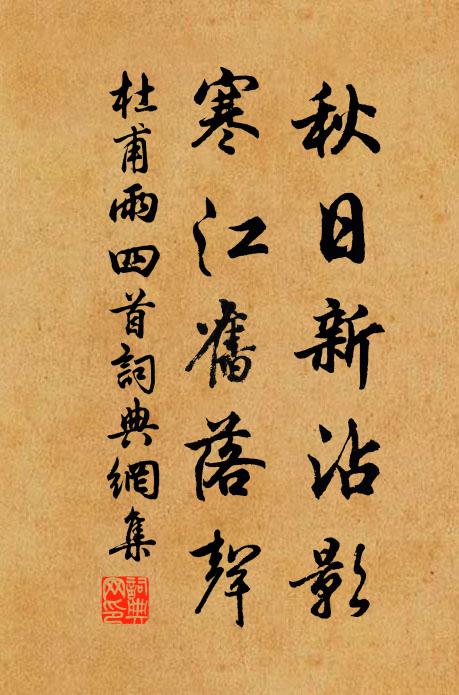 秋日新沾影
寒江舊落聲
杜甫雨四首詞典網集
詞典網印